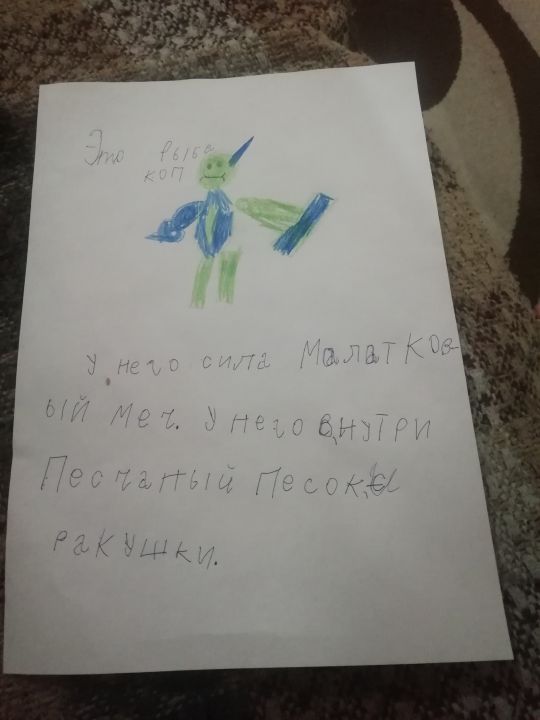 Это рыба
коп
У него сила Малатков-
ый меч. У него внутри
Песчаный песок, и
ракушки.